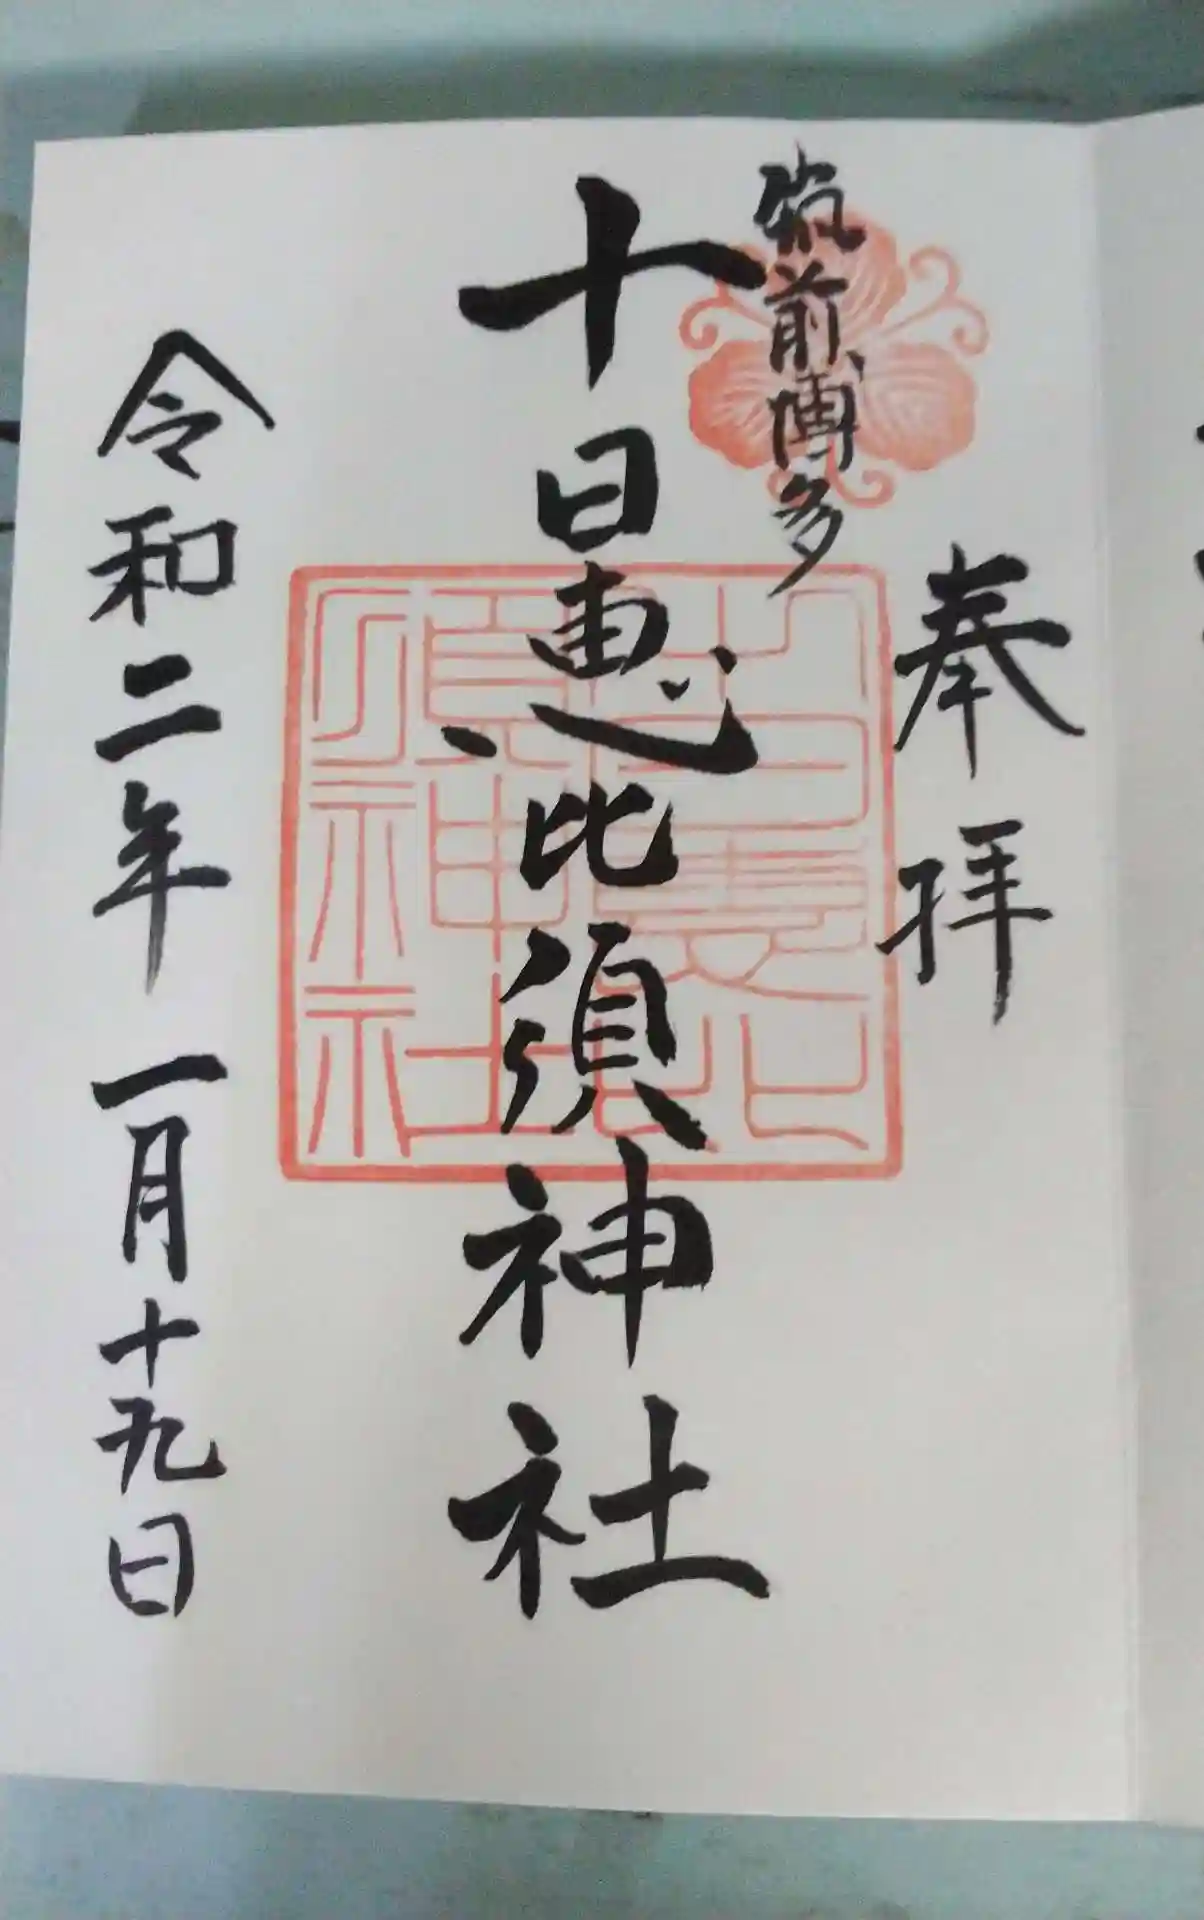 奉拝
筑前博多
十日恵比須神社
令和二年一月十九日
十日恵比須神社